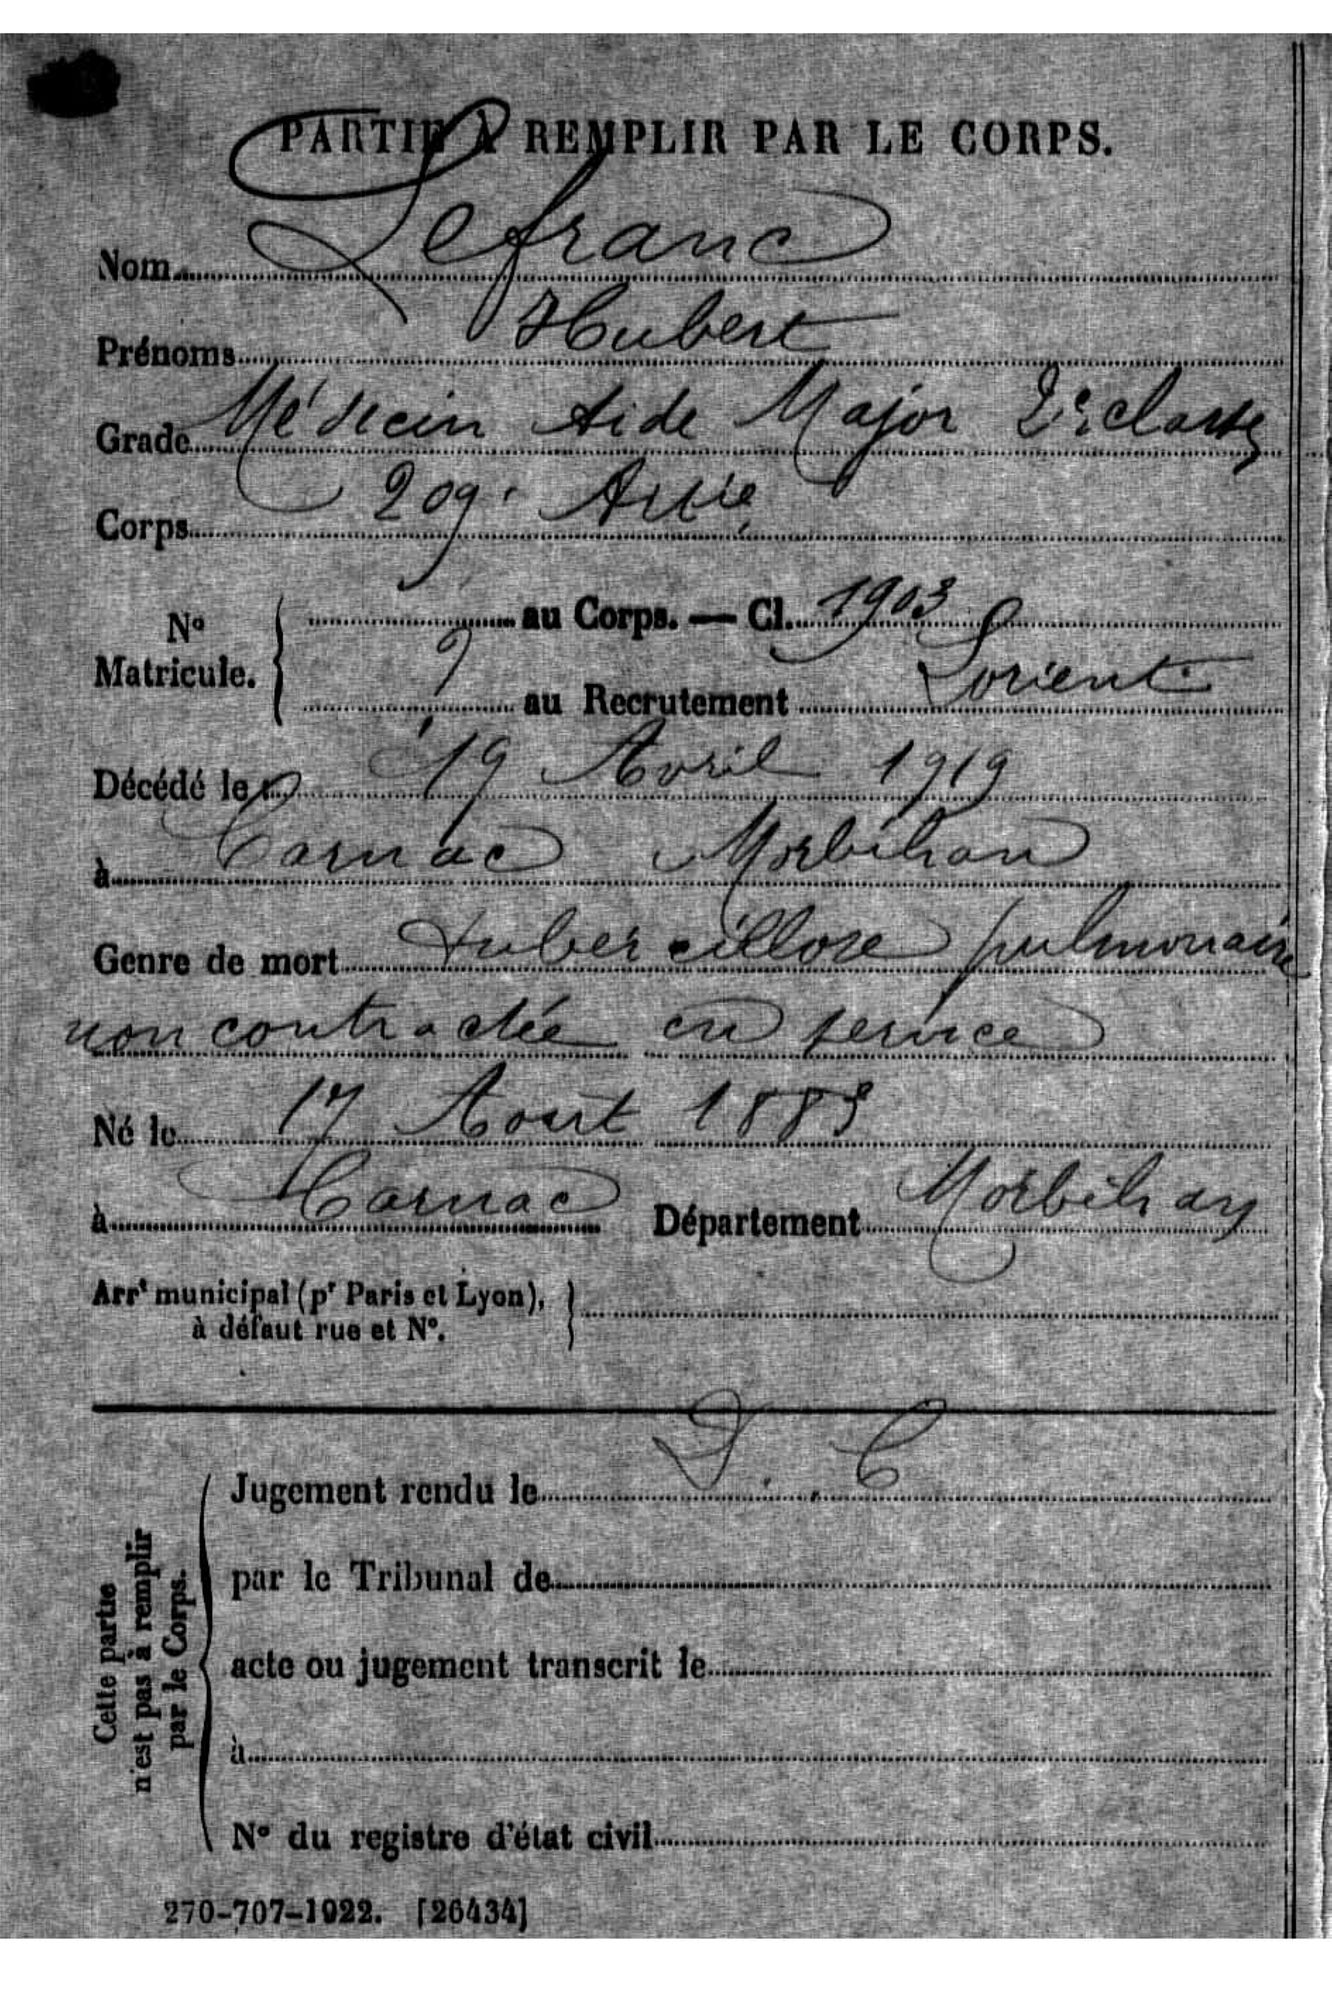 PARTIE À REMPLIR PAR LE CORPS.
Nom Lefranc
Prénoms Hubert
Grade Médecin Aide Major 2e classe
Corps 209e Artie
No Matricule. { au Corps. — Cl. 1903
? au Recrutement Lorient
Décédé le 19 Avril 1919
à Carnac Morbihan
Genre de mort tubercillose pulmonaire
non contractée en service
Né le 17 Aout 1883
à Carnac Département Morbihan
Arrt municipal (pr Paris et Lyon),
à défaut rue et No.
D. C
Cette partie
n'est pas à remplir
par le Corps.
Jugement rendu le
par le Tribunal de
acte ou jugement transcrit le
à
No du registre d'état civil
270-707-1922. [26434]